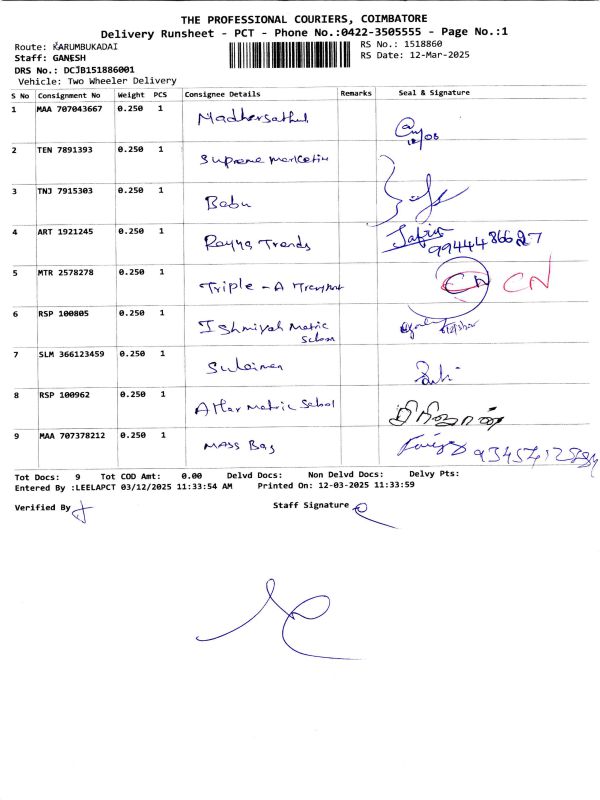 THE PROFESSIONAL COURIERS, COIMBATORE
Delivery Runsheet - PCT - Phone No.:0422-3505555 - Page No.:1
Route: KARUMBUKADAI
RS No.: 1518860
Staff: GANESH
RS Date: 12-Mar-2025
DRS No.: DCJB151886001
Vehicle: Two Wheeler Delivery
S No Consignment No Weight PCS Consignee Details Remarks Seal & Signature
1 MAA 707043667 0.250 1
2 TEN 7891393 0.250 1 Supreme
3 TNJ 7915303 0.250 1 Babu
4 ART 1921245 0.250 1 Rayya Trends
5 MTR 2578278 0.250 1 Triple - A CN CN
6 RSP 100805 0.250 1 Ishmiyah Matric
7 SLM 366123459 0.250 1 Sulaiman
8 RSP 100962 0.250 1 Matric
9 MAA 707378212 0.250 1 MASS Bag
Tot Docs: 9 Tot COD Amt: 0.00 Delvd Docs: Non Delvd Docs: Delvy Pts:
Entered By :LEELAPCT 03/12/2025 11:33:54 AM Printed On: 12-03-2025 11:33:59
Verified By Staff Signature